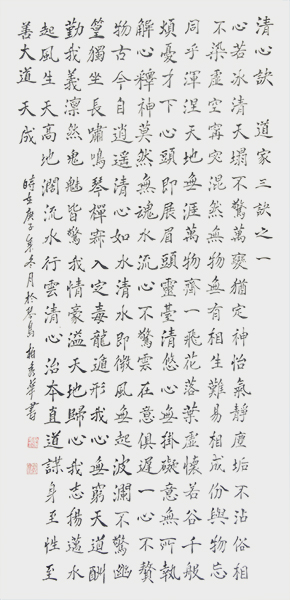 清心訣 道家三訣之一
心若冰清天塌不驚萬變猶定神怡氣靜塵垢不沾俗相
不染虛空甯宓混然無物無有相生難易相成份與物忘
同乎渾涅天地無涯萬物齊一飛花落葉虛懷若谷千般
煩憂才下心頭即展眉頭靈臺清悠心無掛礙意無所執
解心釋神莫然無魂水流心不驚雲在意俱遲一心不贅
物古今自逍遙清心如水清水即微風無起波瀾不驚幽
篁獨坐長嘯鳴琴禪寂入定毒龍遁形我心無窮天道酬
勤我義凜然鬼魅皆驚我情豪溢天地歸心我志揚邁水
起風生天高地闊流水行雲清心治本直道謀身至性至
善大道天成 時在庚子年冬月於琴島 柏秀華書